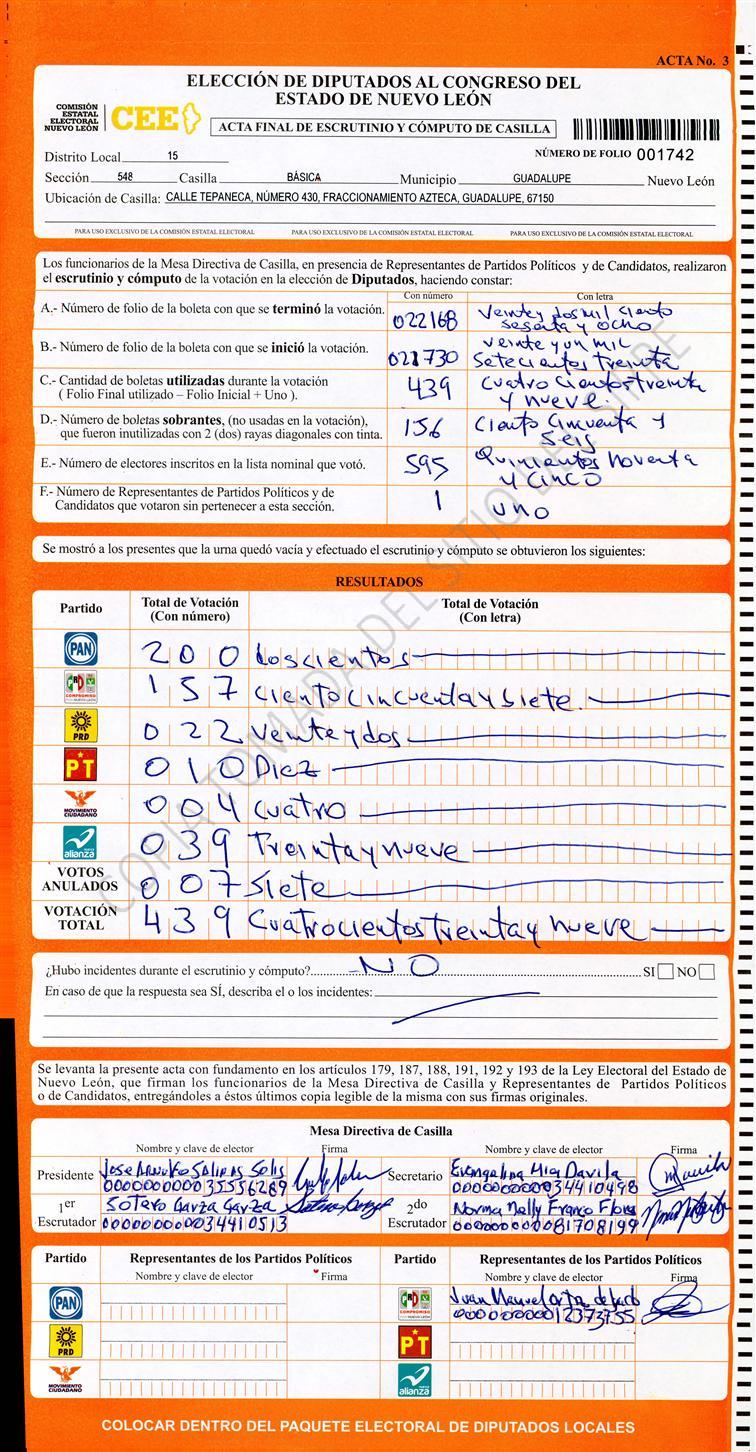 ACTA No. 3
ELECCIÓN DE DIPUTADOS AL CONGRESO DEL
ESTADO DE NUEVO LEÓN
COMISIÓN
ESTATAL
ELECTORAL
NUEVO LEÓN
CEE
ACTA FINAL DE ESCRUTINIO Y CÓMPUTO DE CASILLA
Distrito Local 15
NÚMERO DE FOLIO 001742
Sección 548 Casilla BÁSICA Municipio GUADALUPE Nuevo León
Ubicación de Casilla: CALLE TEPANECA, NÚMERO 430, FRACCIONAMIENTO AZTECA, GUADALUPE, 67150
PARA USO EXCLUSIVO DE LA COMISIÓN ESTATAL ELECTORAL PARA USO EXCLUSIVO DE LA COMISIÓN ESTATAL ELECTORAL PARA USO EXCLUSIVO DE LA COMISIÓN ESTATAL ELECTORAL
Los funcionarios de la Mesa Directiva de Casilla, en presencia de Representantes de Partidos Políticos y de Candidatos, realizaron
el escrutinio y cómputo de la votación en la elección de Diputados, haciendo constar:
Con número Con letra
A.- Número de folio de la boleta con que se terminó la votación. 022168 Veinte y dos mil ciento
sesenta y ocho
B.- Número de folio de la boleta con que se inició la votación. 021730 veinte y un mil
setecientos treinta
C.- Cantidad de boletas utilizadas durante la votación
( Folio Final utilizado – Folio Inicial + Uno ). 439 cuatro cientos treinta
y nueve.
D.- Número de boletas sobrantes, (no usadas en la votación),
que fueron inutilizadas con 2 (dos) rayas diagonales con tinta. 156 ciento cincuenta y
seis
E.- Número de electores inscritos en la lista nominal que votó. 595 Quinientos noventa
y cinco
F.- Número de Representantes de Partidos Políticos y de
Candidatos que votaron sin pertenecer a esta sección. 1 uno
Se mostró a los presentes que la urna quedó vacía y efectuado el escrutinio y cómputo se obtuvieron los siguientes:
RESULTADOS
Partido Total de Votación
(Con número) Total de Votación
(Con letra)
PAN 200 Doscientos
157 ciento cincuenta y siete.
PRD 022 veinte y dos
PT 010 Diez
MOVIMIENTO
CIUDADANO 004 cuatro
alianza 039 Treinta y nueve
VOTOS
ANULADOS 007 siete
VOTACIÓN
TOTAL 439 Cuatrocientos treinta y nueve
¿Hubo incidentes durante el escrutinio y cómputo? NO SI NO
En caso de que la respuesta sea SÍ, describa el o los incidentes:
Se levanta la presente acta con fundamento en los artículos 179, 187, 188, 191, 192 y 193 de la Ley Electoral del Estado de
Nuevo León, que firman los funcionarios de la Mesa Directiva de Casilla y Representantes de Partidos Políticos
o de Candidatos, entregándoles a éstos últimos copia legible de la misma con sus firmas originales.
Mesa Directiva de Casilla
Nombre y clave de elector Firma Nombre y clave de elector Firma
Presidente Jose Arnulfo Salinas Solis
000000000035556289
Secretario Evangelina Mia Davila
000000000034410498
1er
Escrutador Sotero Garza Garza
000000000034410513
2do
Escrutador Norma Nelly Franco Flores
000000000081708199
Partido Representantes de los Partidos Políticos
Nombre y clave de elector Firma
Partido Representantes de los Partidos Políticos
Nombre y clave de elector Firma
PAN
Juan Manuel
000000000012373755
PRD
PT
MOVIMIENTO
CIUDADANO
alianza
COLOCAR DENTRO DEL PAQUETE ELECTORAL DE DIPUTADOS LOCALES